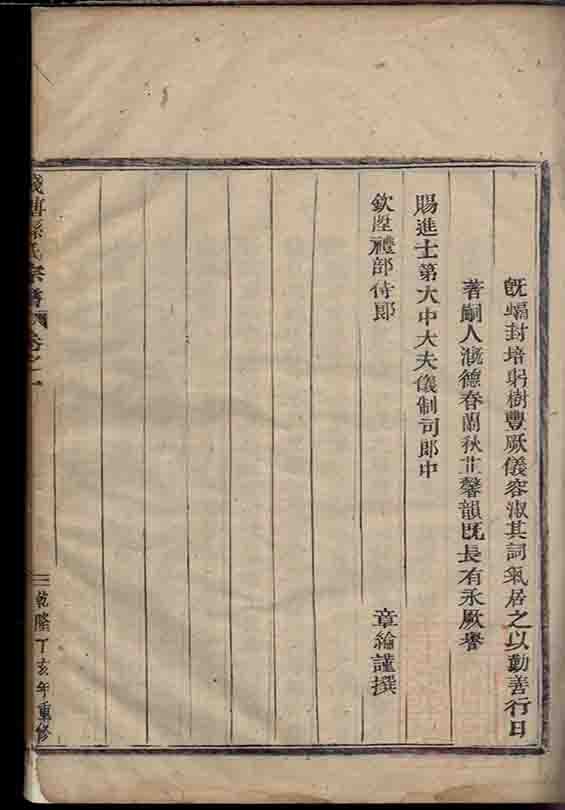 既竭封培躬樹豐厥儀容淑其詞氣居之以勤善行日
著嗣人漑德春蘭秋韭馨韻既長有永厥譽
賜進士第大中大夫儀制司郎中
欽陞禮部侍郎 章綸謹撰
孫氏宗譜 卷之一
乾隆丁亥年重修